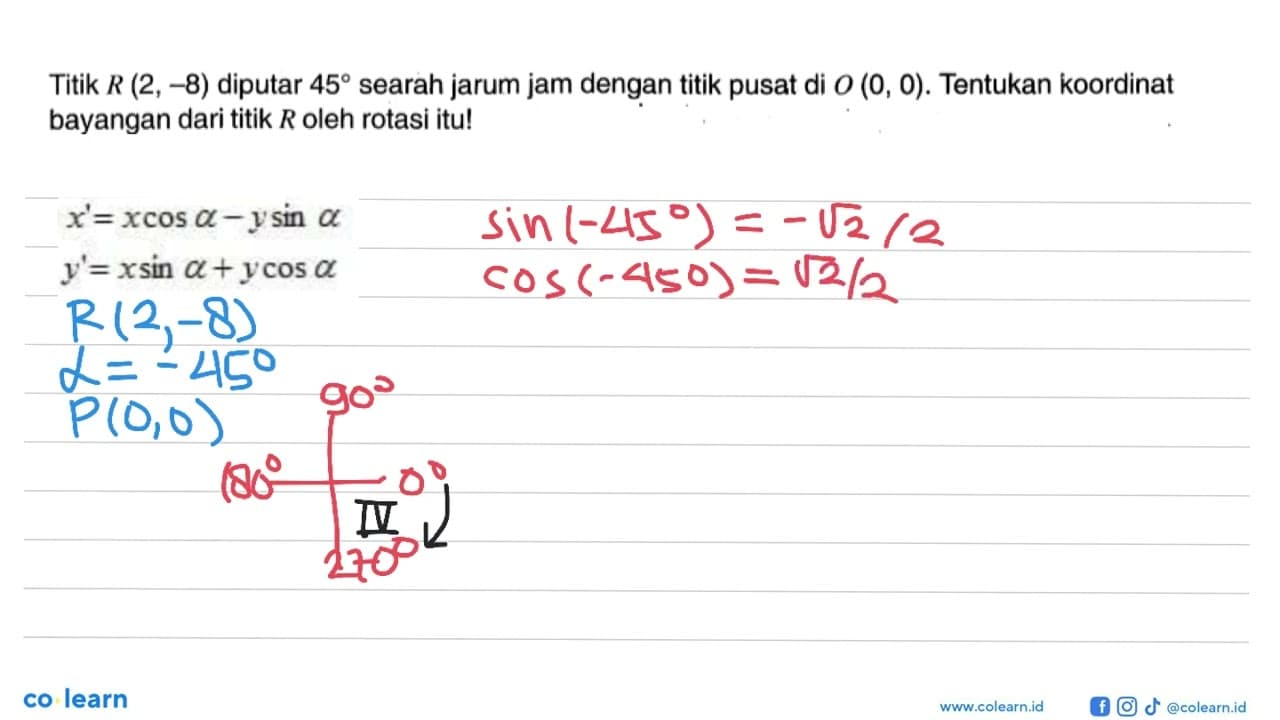 Titik R (2, –8) diputar 45° searah jarum jam dengan titik pusat di O (0, 0). Tentukan koordinat
bayangan dari titik R oleh rotasi itu!
x'= x cos α – y sin α
y'= x sin α + y cos α
sin(-45°) = -√2/2
cos(-45°) = √2/2
R(2,-8)
α = -45°
P(0,0)
90°
180°
0°
IV
270°
co learn
www.colearn.id
@colearn.id